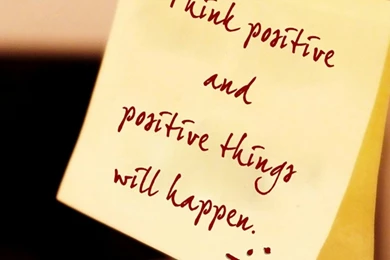 Think positive
and
positive things
will happen.